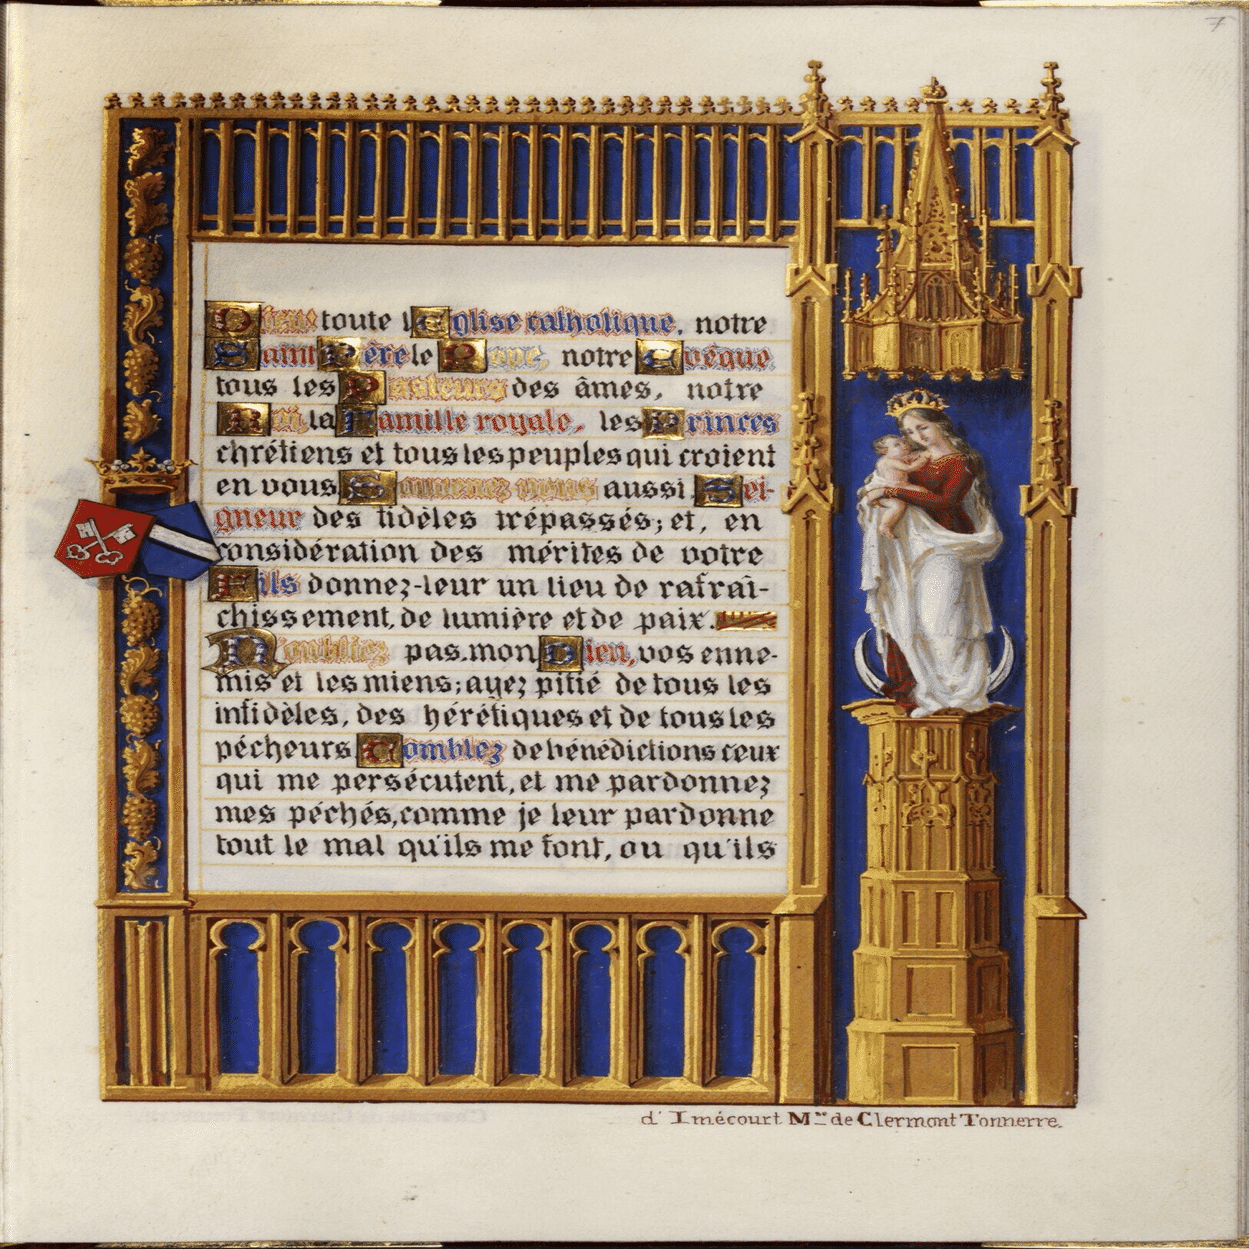 7
Dieu toute l'Eglise catholique, notre
Saint Père le Pape, notre Evêque,
tous les Pasteurs des âmes, notre
Roi, la Famille royale, les Princes
chrétiens et tous les peuples qui croient
en vous Souvenez-vous aussi Sei-
gneur des fidèles trépassés; et, en
considération des mérites de votre
Fils donnez-leur un lieu de rafraî-
chissement, de lumière et de paix.
N'oubliez pas, mon Dieu, vos enne-
mis et les miens; ayez pitié de tous les
infidèles, des hérétiques et de tous les
pécheurs Comblez de bénédictions ceux
qui me persécutent, et me pardonnez
mes péchés, comme je leur pardonne
tout le mal qu'ils me font, ou qu'ils
d'Imécourt Mise de Clermont Tonnerre.